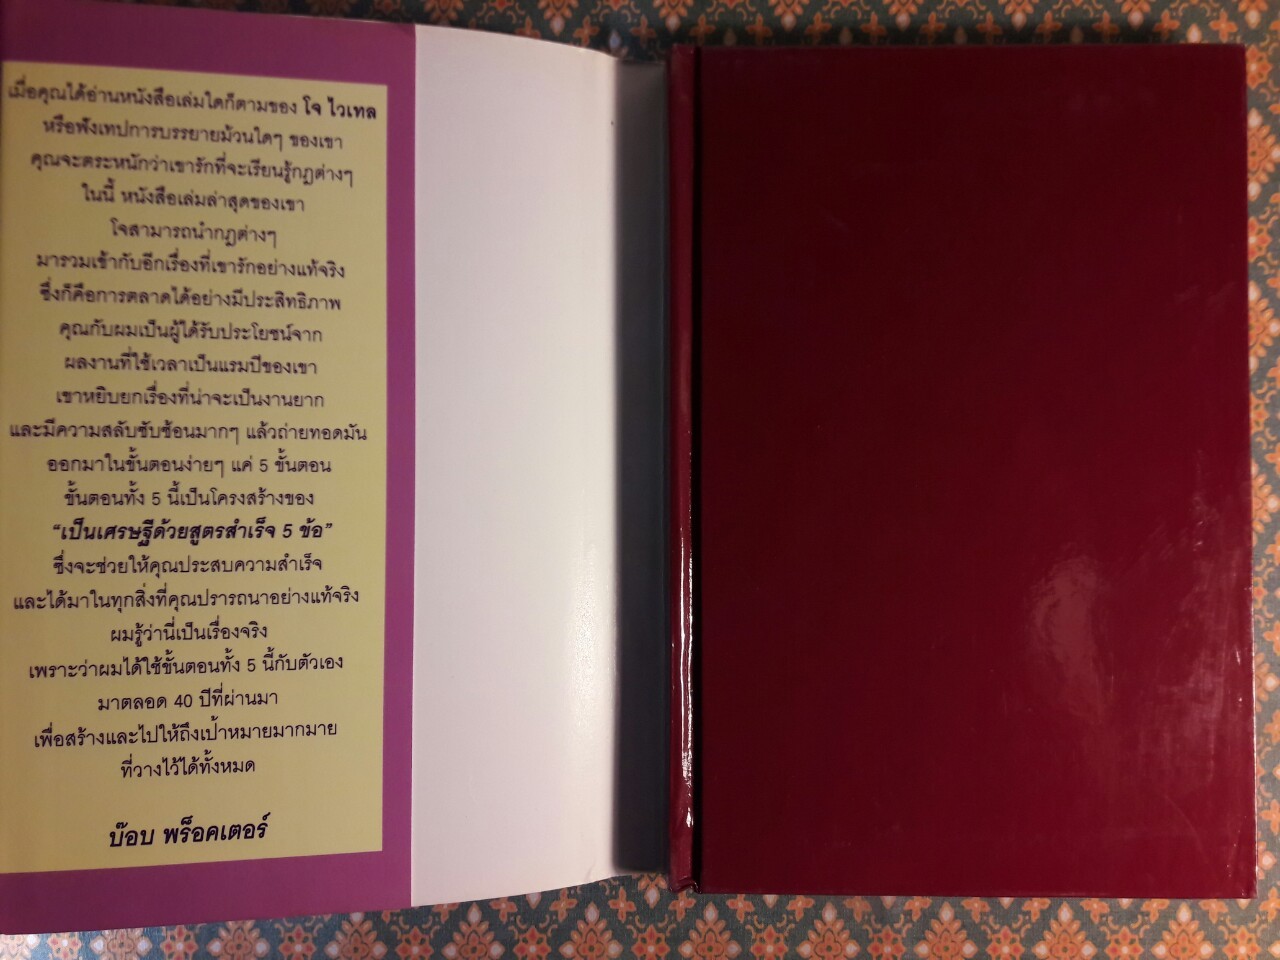 เมื่อคุณได้อ่านหนังสือเล่มใดก็ตามของ โจ ไวเทล
หรือฟังเทปการบรรยายม้วนใดๆ ของเขา
คุณจะตระหนักว่าเขารักที่จะเรียนรู้กฎต่างๆ
ในนี้ หนังสือเล่มล่าสุดของเขา
โจสามารถนำกฎต่างๆ
มารวมเข้ากับอีกเรื่องที่เขารักอย่างแท้จริง
ซึ่งก็คือการตลาดได้อย่างมีประสิทธิภาพ
คุณกับผมเป็นผู้ได้รับประโยชน์จาก
ผลงานที่ใช้เวลาเป็นแรมปีของเขา
เขาหยิบยกเรื่องที่น่าจะเป็นงานยาก
และมีความสลับซับซ้อนมากๆ แล้วถ่ายทอดมัน
ออกมาในขั้นตอนง่ายๆ แค่ 5 ขั้นตอน
ขั้นตอนทั้ง 5 นี้เป็นโครงสร้างของ
“เป็นเศรษฐีด้วยสูตรสำเร็จ 5 ข้อ”
ซึ่งจะช่วยให้คุณประสบความสำเร็จ
และได้มาในทุกสิ่งที่คุณปรารถนาอย่างแท้จริง
ผมรู้ว่านี่เป็นเรื่องจริง
เพราะว่าผมได้ใช้ขั้นตอนทั้ง 5 นี้กับตัวเอง
มาตลอด 40 ปีที่ผ่านมา
เพื่อสร้างและไปให้ถึงเป้าหมายมากมาย
ที่วางไว้ได้ทั้งหมด
บ๊อบ พร็อคเตอร์